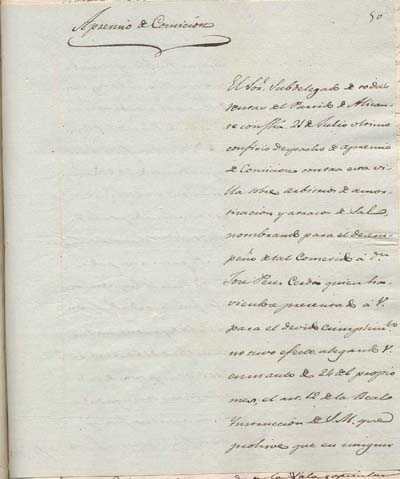 Apremio de Comision
50
El Sor. Subdelegado de todas
rentas del Partido de Alican-
te con fha. 21 de Julio ultimo
confirio despacho de apremio
de Comision contra esta vi-
lla sobre arbitrios de amor-
tizacion y atrasos de Sal,
nombrando para el desem-
peño de tal Cometido á dn.
José Perez Cerdá quien ha-
viendose presentado á V.
para el devido cumplimto.
no tuvo efecto, alegando V.
en su auto de 24 del propio
mes, el art. 12 de la Real
Instruccion de S. M. que
previene que en ningun